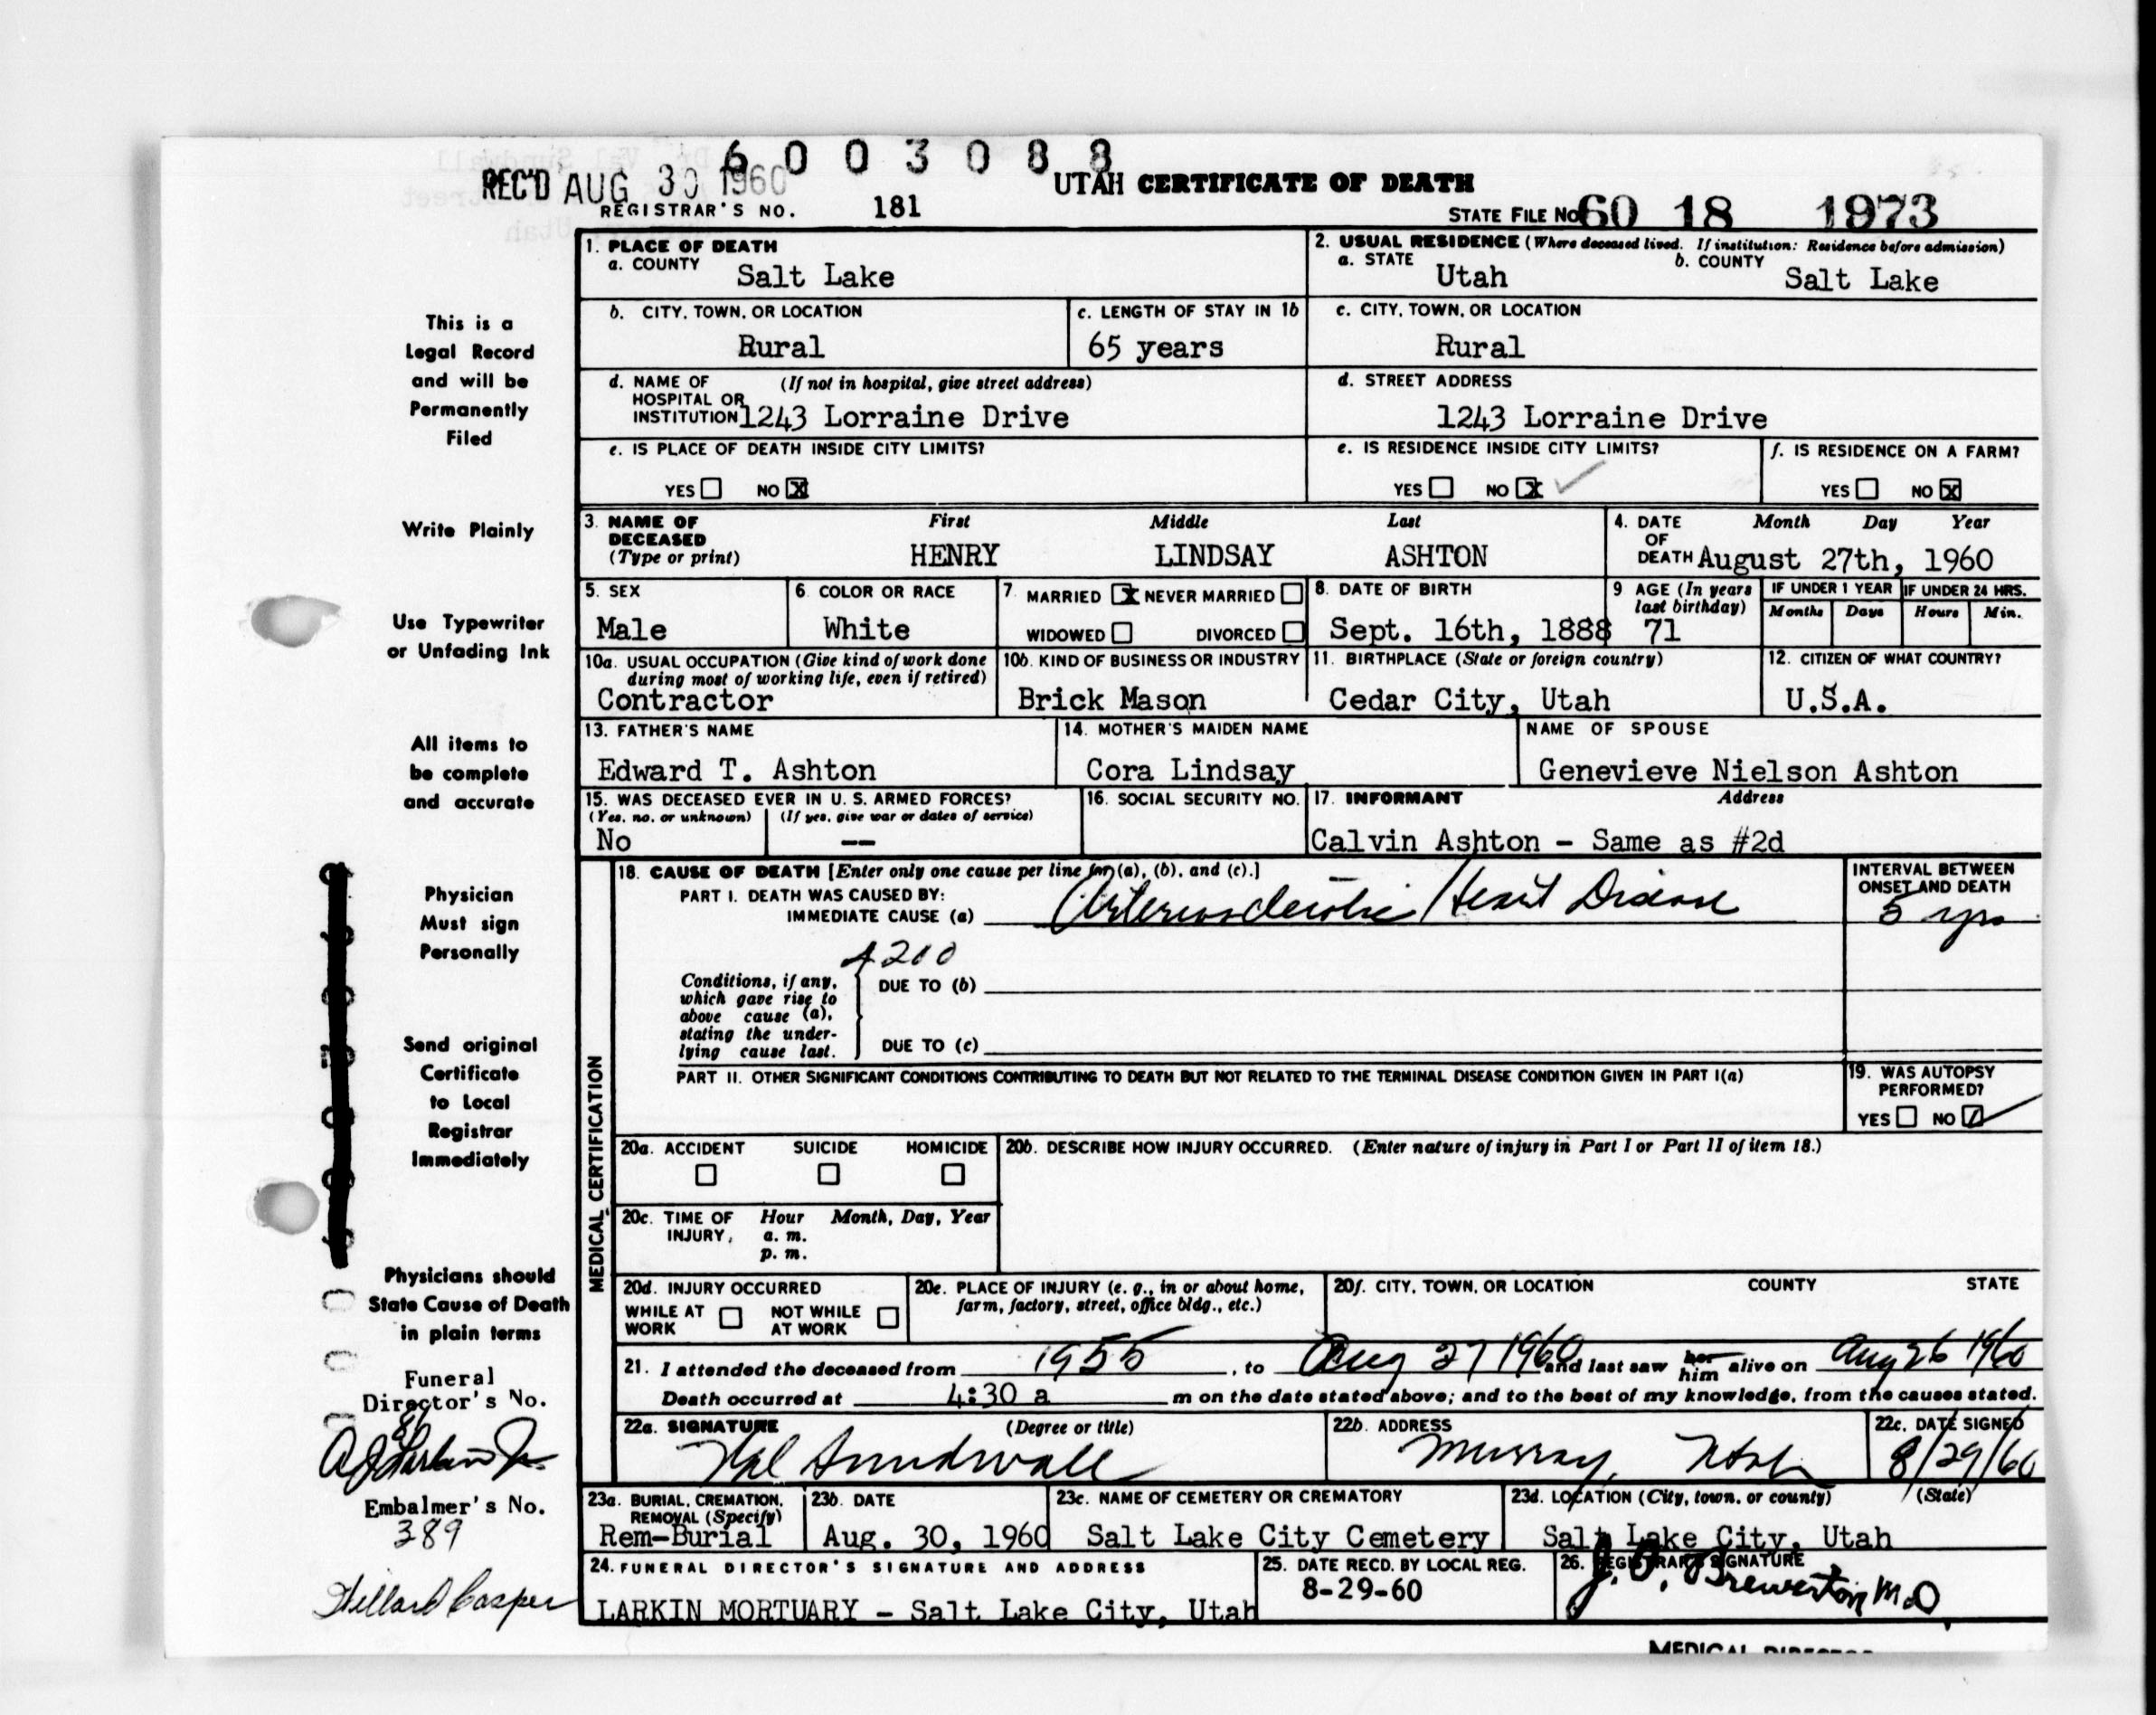 6003088
REC'D AUG 30 1960
UTAH CERTIFICATE OF DEATH
REGISTRAR'S NO. 181
STATE FILE No 60 18 1973
1. PLACE OF DEATH
a. COUNTY Salt Lake
2. USUAL RESIDENCE (Where deceased lived. If institution: Residence before admission)
a. STATE Utah b. COUNTY Salt Lake
b. CITY, TOWN, OR LOCATION Rural
c. LENGTH OF STAY IN 1b 65 years
c. CITY, TOWN, OR LOCATION Rural
d. NAME OF HOSPITAL OR INSTITUTION (If not in hospital, give street address) 1243 Lorraine Drive
d. STREET ADDRESS 1243 Lorraine Drive
e. IS PLACE OF DEATH INSIDE CITY LIMITS?
YES NO X
e. IS RESIDENCE INSIDE CITY LIMITS?
YES NO X
f. IS RESIDENCE ON A FARM?
YES NO X
3. NAME OF DECEASED (Type or print)
First Middle Last
HENRY LINDSAY ASHTON
4. DATE OF DEATH Month Day Year
August 27th, 1960
5. SEX Male
6. COLOR OR RACE White
7. MARRIED X NEVER MARRIED
WIDOWED DIVORCED
8. DATE OF BIRTH Sept. 16th, 1888
9 AGE (In years last birthday) 71
IF UNDER 1 YEAR Months Days
IF UNDER 24 HRS. Hours Min.
10a. USUAL OCCUPATION (Give kind of work done during most of working life, even if retired)
Contractor
10b. KIND OF BUSINESS OR INDUSTRY
Brick Mason
11. BIRTHPLACE (State or foreign country)
Cedar City, Utah
12. CITIZEN OF WHAT COUNTRY?
U.S.A.
13. FATHER'S NAME
Edward T. Ashton
14. MOTHER'S MAIDEN NAME
Cora Lindsay
NAME OF SPOUSE
Genevieve Nielson Ashton
15. WAS DECEASED EVER IN U. S. ARMED FORCES?
(Yes, no, or unknown) (If yes, give war or dates of service)
No --
16. SOCIAL SECURITY NO.
17. INFORMANT Address
Calvin Ashton - Same as #2d
MEDICAL CERTIFICATION
18. CAUSE OF DEATH [Enter only one cause per line for (a), (b), and (c).]
PART I. DEATH WAS CAUSED BY:
IMMEDIATE CAUSE (a) Arteriosclerotic Heart Disease
INTERVAL BETWEEN ONSET AND DEATH
5 yrs
4200
Conditions, if any, which gave rise to above cause (a), stating the underlying cause last.
DUE TO (b)
DUE TO (c)
PART II. OTHER SIGNIFICANT CONDITIONS CONTRIBUTING TO DEATH BUT NOT RELATED TO THE TERMINAL DISEASE CONDITION GIVEN IN PART I(a)
19. WAS AUTOPSY PERFORMED?
YES NO
20a. ACCIDENT SUICIDE HOMICIDE
20b. DESCRIBE HOW INJURY OCCURRED. (Enter nature of injury in Part I or Part II of item 18.)
20c. TIME OF INJURY Hour Month, Day, Year
a. m.
p. m.
20d. INJURY OCCURRED
WHILE AT WORK NOT WHILE AT WORK
20e. PLACE OF INJURY (e. g., in or about home, farm, factory, street, office bldg., etc.)
20f. CITY, TOWN, OR LOCATION COUNTY STATE
21. I attended the deceased from 1955, to Aug 27 1960 and last saw her him alive on Aug 26 1960
Death occurred at 4:30 a m on the date stated above; and to the best of my knowledge, from the causes stated.
22a. SIGNATURE (Degree or title)
Val Sundwall
22b. ADDRESS
Murray, Utah
22c. DATE SIGNED
8/29/60
23a. BURIAL, CREMATION, REMOVAL (Specify)
Rem-Burial
23b. DATE
Aug. 30, 1960
23c. NAME OF CEMETERY OR CREMATORY
Salt Lake City Cemetery
23d. LOCATION (City, town, or county) (State)
Salt Lake City, Utah
24. FUNERAL DIRECTOR'S SIGNATURE AND ADDRESS
LARKIN MORTUARY - Salt Lake City, Utah
25. DATE RECD. BY LOCAL REG.
8-29-60
26. REGISTRAR'S SIGNATURE
J. O. Brewerton M.D
This is a
Legal Record
and will be
Permanently
Filed
Write Plainly
Use Typewriter
or Unfading Ink
All items to
be complete
and accurate
Physician
Must sign
Personally
Send original
Certificate
to Local
Registrar
Immediately
Physicians should
State Cause of Death
in plain terms
Funeral
Director's No.
86
A J Larkin Jr.
Embalmer's No.
389
Hillard Casper
MEDICAL DIRECTOR